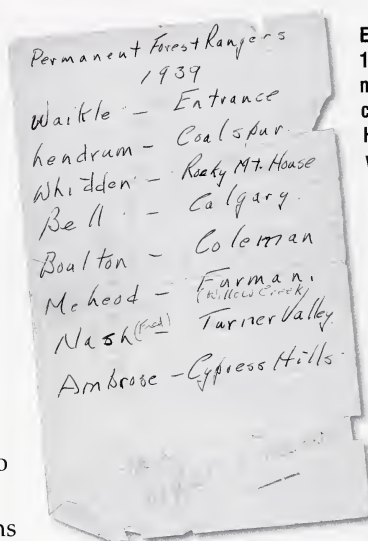 Permanent Forest Rangers
1939
Waikle - Entrance
Lendrum - Coalspur.
Whidden - Rocky Mt. House
Bell - Calgary.
Boulton - Coleman
McLeod - Furman.
(Willow Creek)
Nash (Fred) - Turner Valley.
Ambrose - Cypress Hills.
E
1
n
c
H
v
o
ns